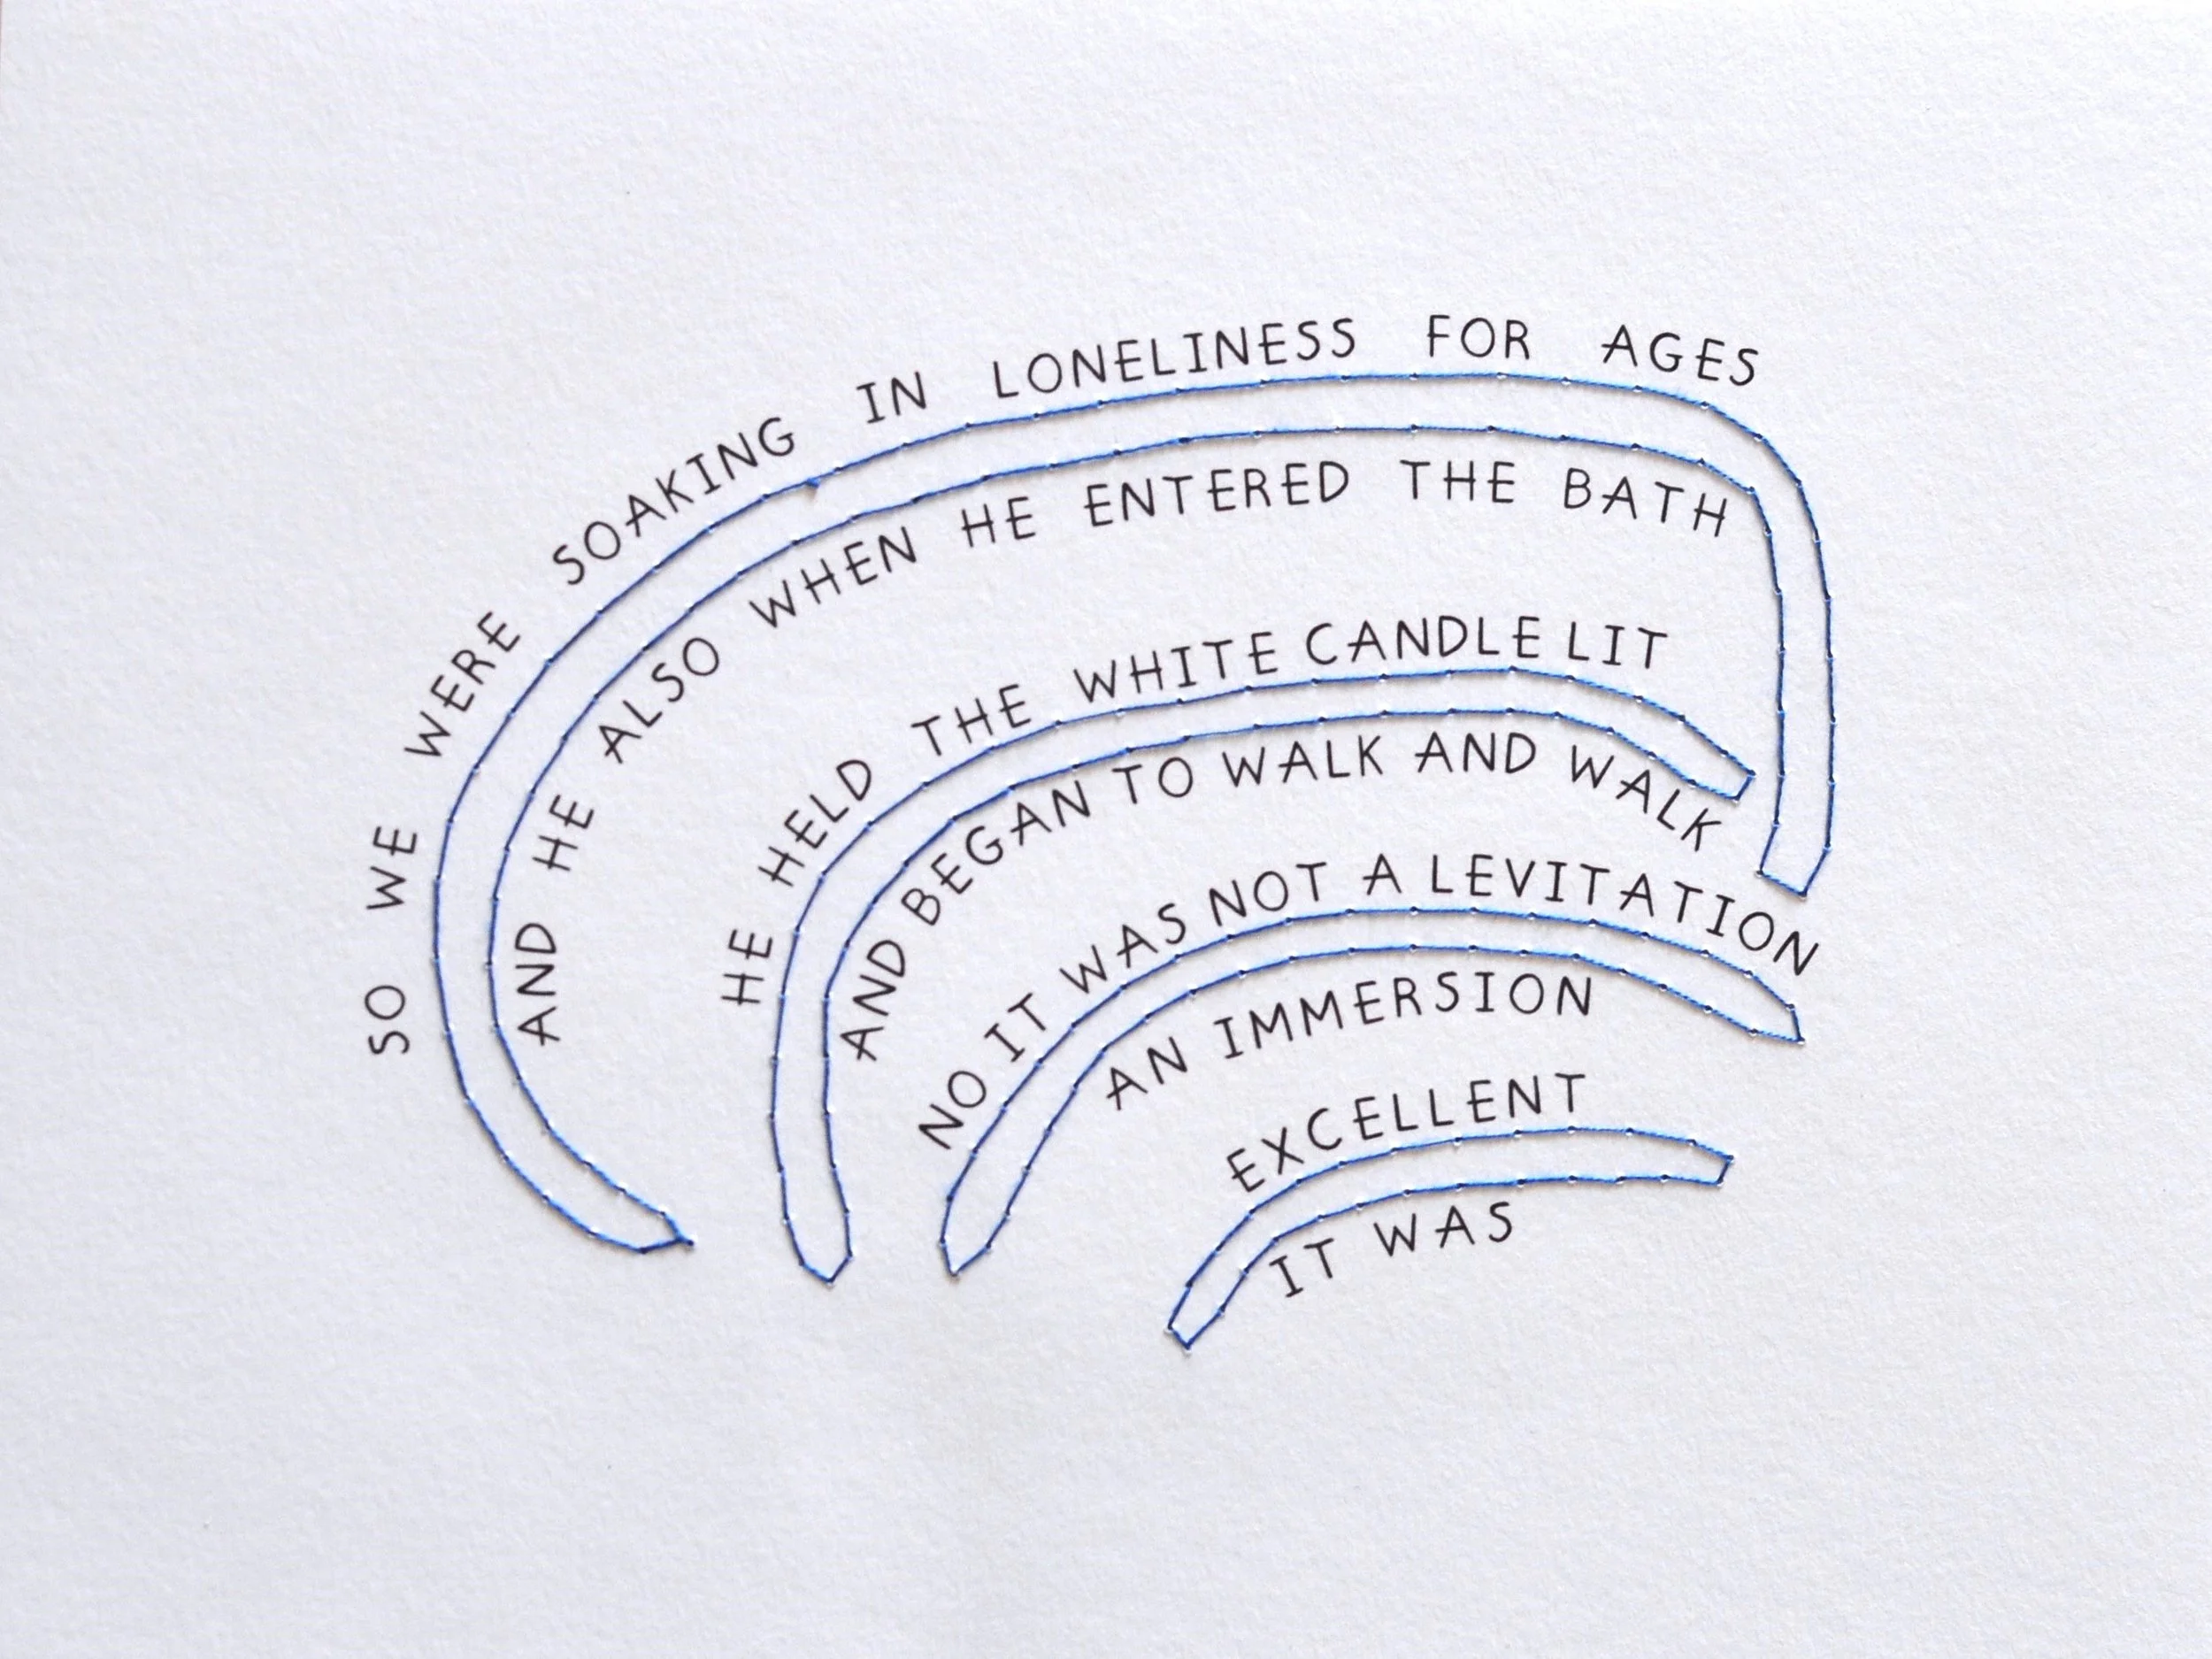 SO WE WERE SOAKING IN LONELINESS FOR AGES
AND HE ALSO WHEN HE ENTERED THE BATH
HE HELD THE WHITE CANDLE LIT
AND BEGAN TO WALK AND WALK
NO IT WAS NOT A LEVITATION
AN IMMERSION
EXCELLENT
IT WAS